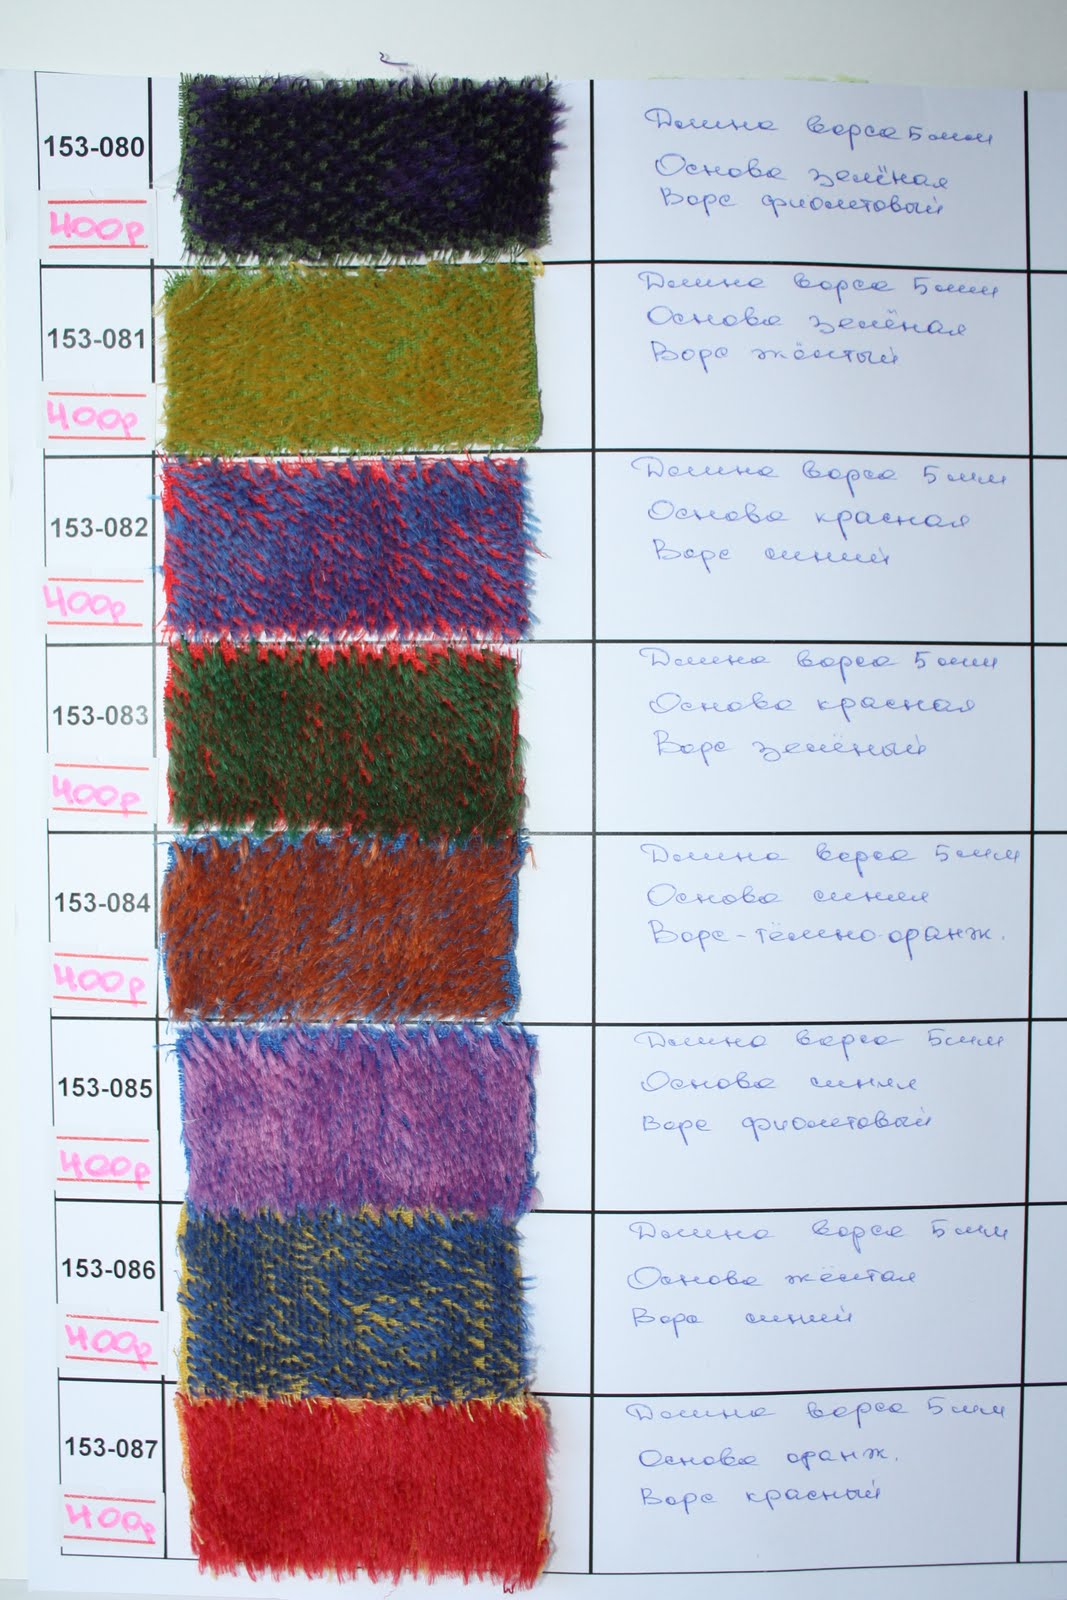 153-080
400р
Длина ворса 5 мм
Основа зелёная
Ворс фиолетовый
153-081
400р
Длина ворса 5 мм
Основа зелёная
Ворс жёлтый
153-082
400р
Длина ворса 5 мм
Основа красная
Ворс синий
153-083
400р
Длина ворса 5 мм
Основа красная
Ворс зелёный
153-084
400р
Длина ворса 5 мм
Основа синяя
Ворс - тёмно-оранж.
153-085
400р
Длина ворса 5 мм
Основа синяя
Ворс фиолетовый
153-086
400р
Длина ворса 5 мм
Основа жёлтая
Ворс синий
153-087
400р
Длина ворса 5 мм
Основа оранж.
Ворс красный